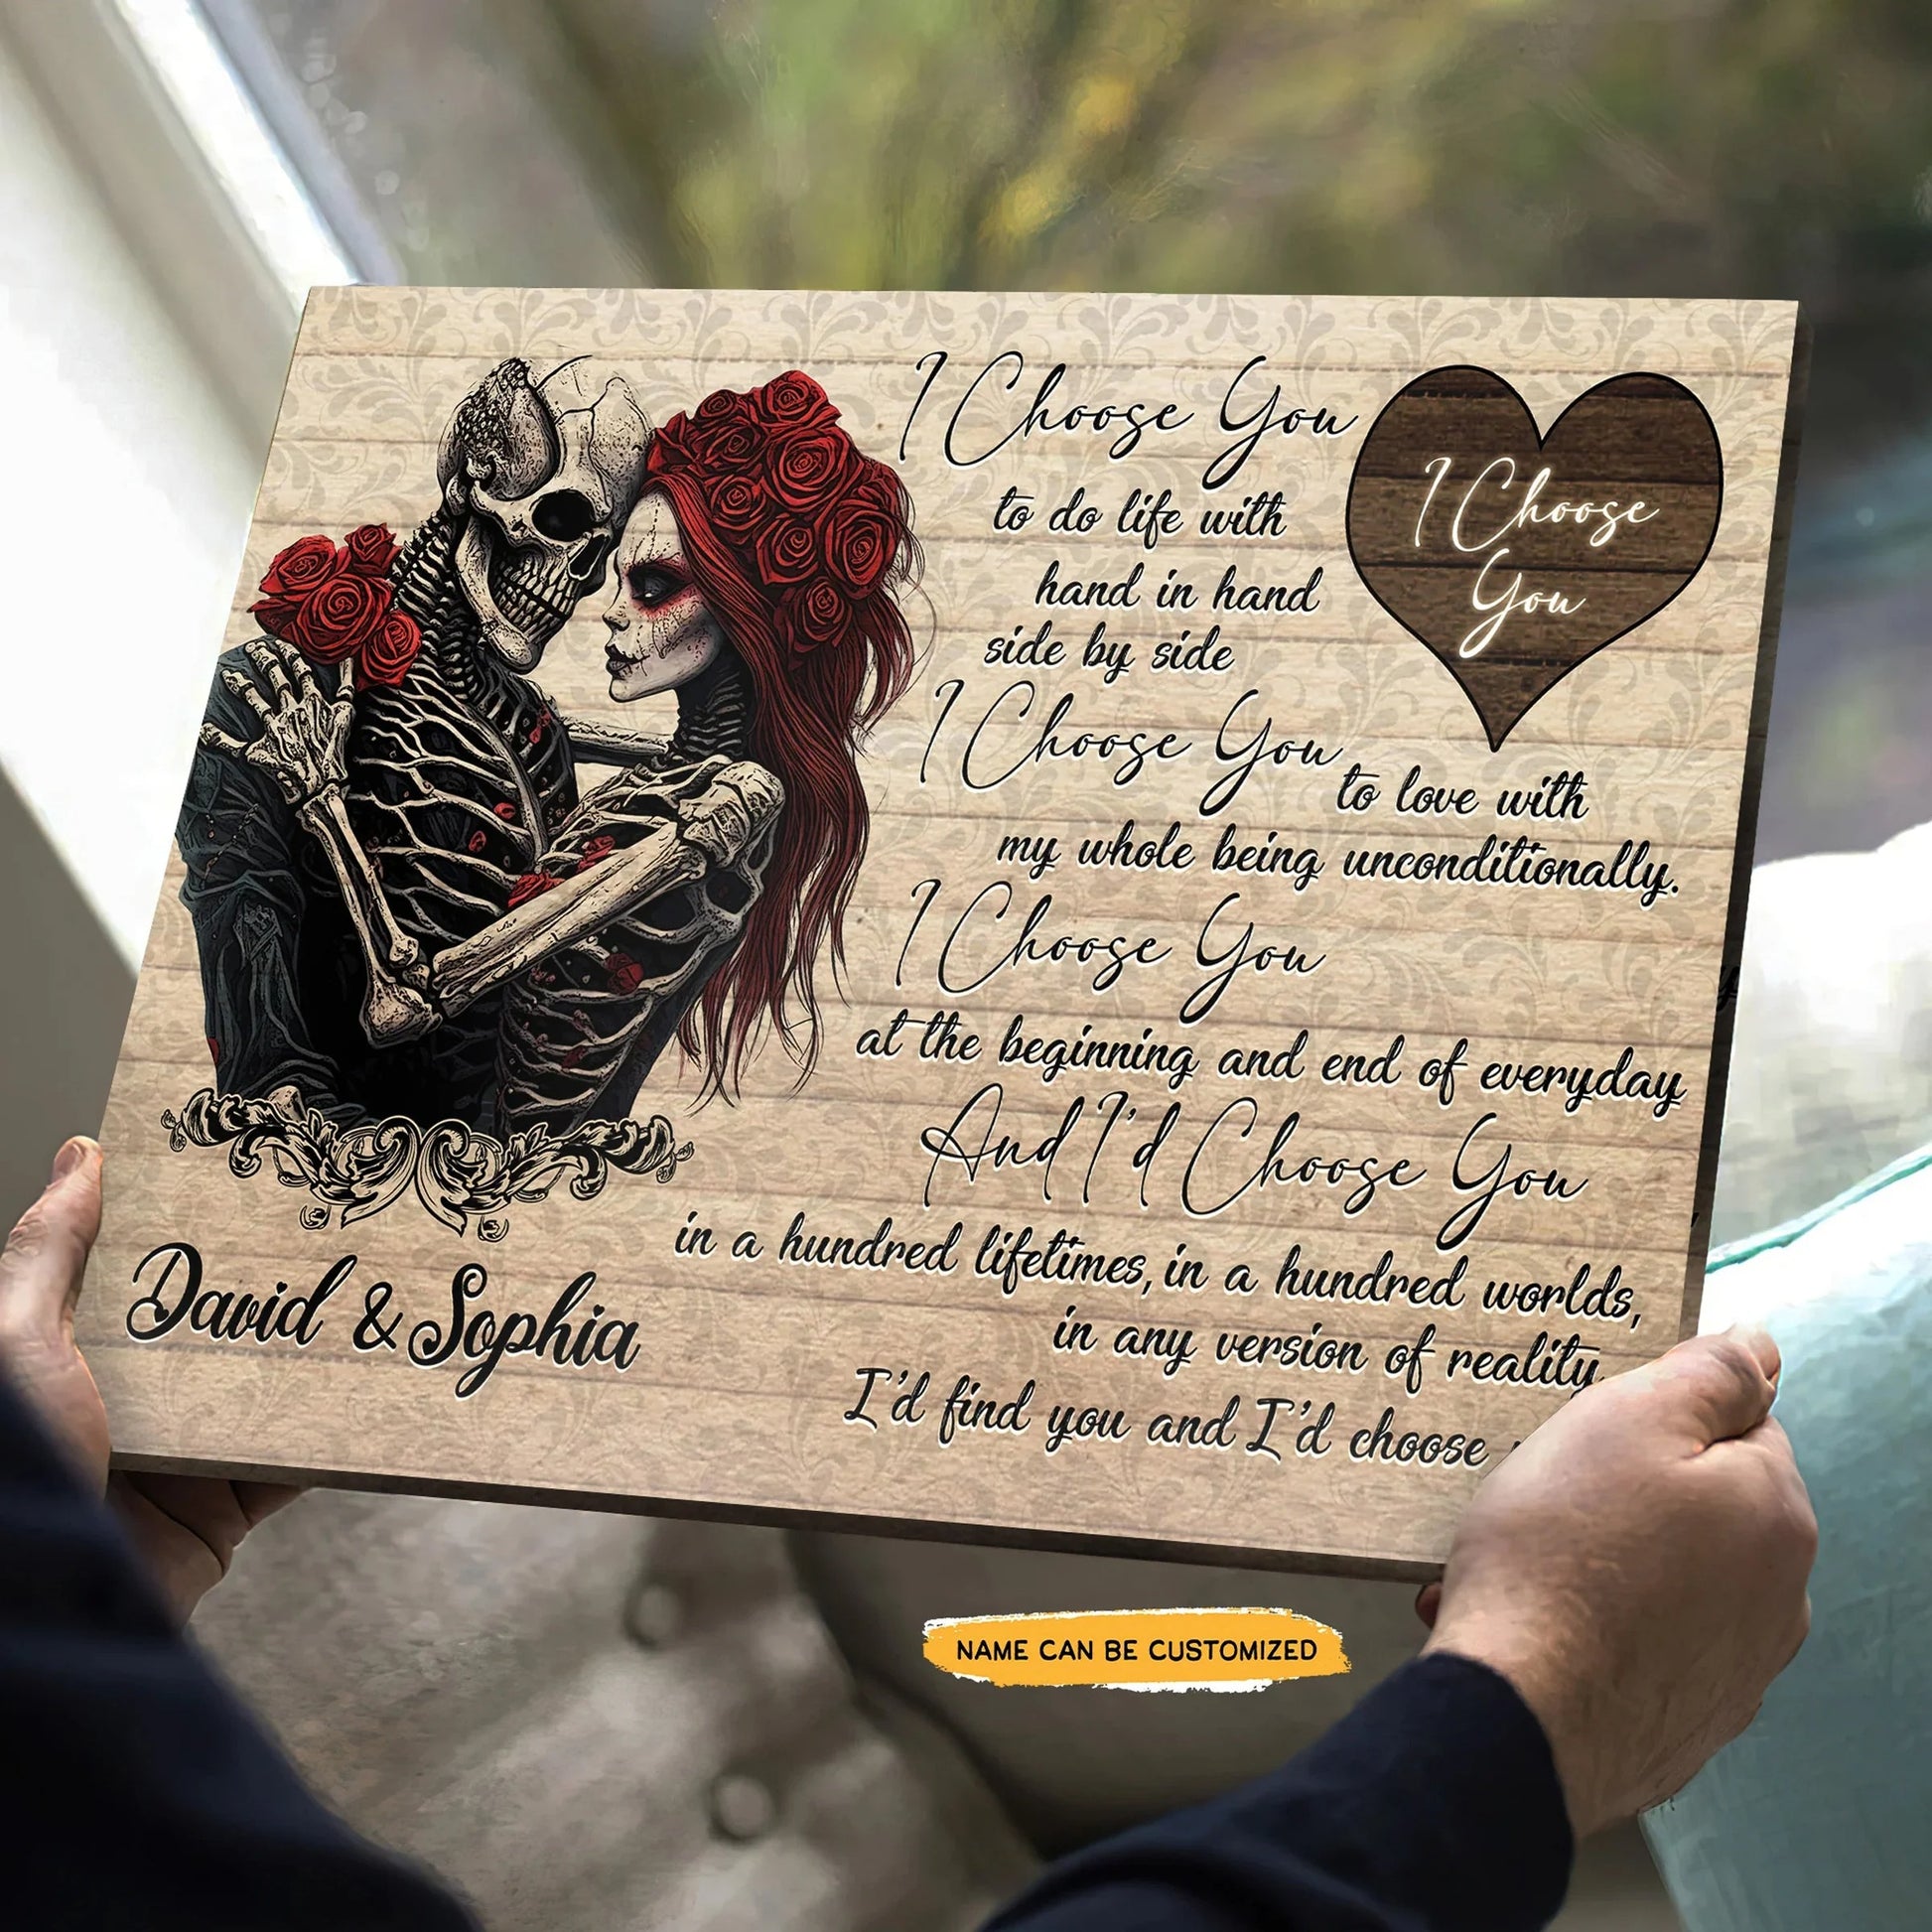 I Choose You
to do life with
hand in hand
side by side
I Choose You
to love with
my whole being unconditionally.
I Choose You
at the beginning and end of everyday
And I'd Choose You
in a hundred lifetimes, in a hundred worlds,
in any version of reality
I'd find you and I'd choose
I Choose
You
David & Sophia
NAME CAN BE CUSTOMIZED